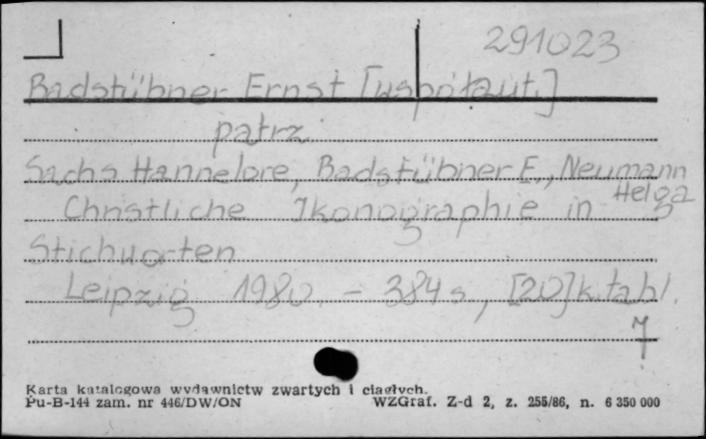 291023
Badstübner Ernst [współaut.]
patrz
Sachs Hannelore, Badstübner E., Neumann
Helga
Christliche Ikonographie in
Stichworten
Leipzig 1980. – 384 s, [20] k. tabl.
Karta katalogowa wydawnictw zwartych i ciągłych.
Pu-B-144 zam. nr 446/DW/ON WZGraf. Z-d 2, z. 255/86, n. 6 350 000